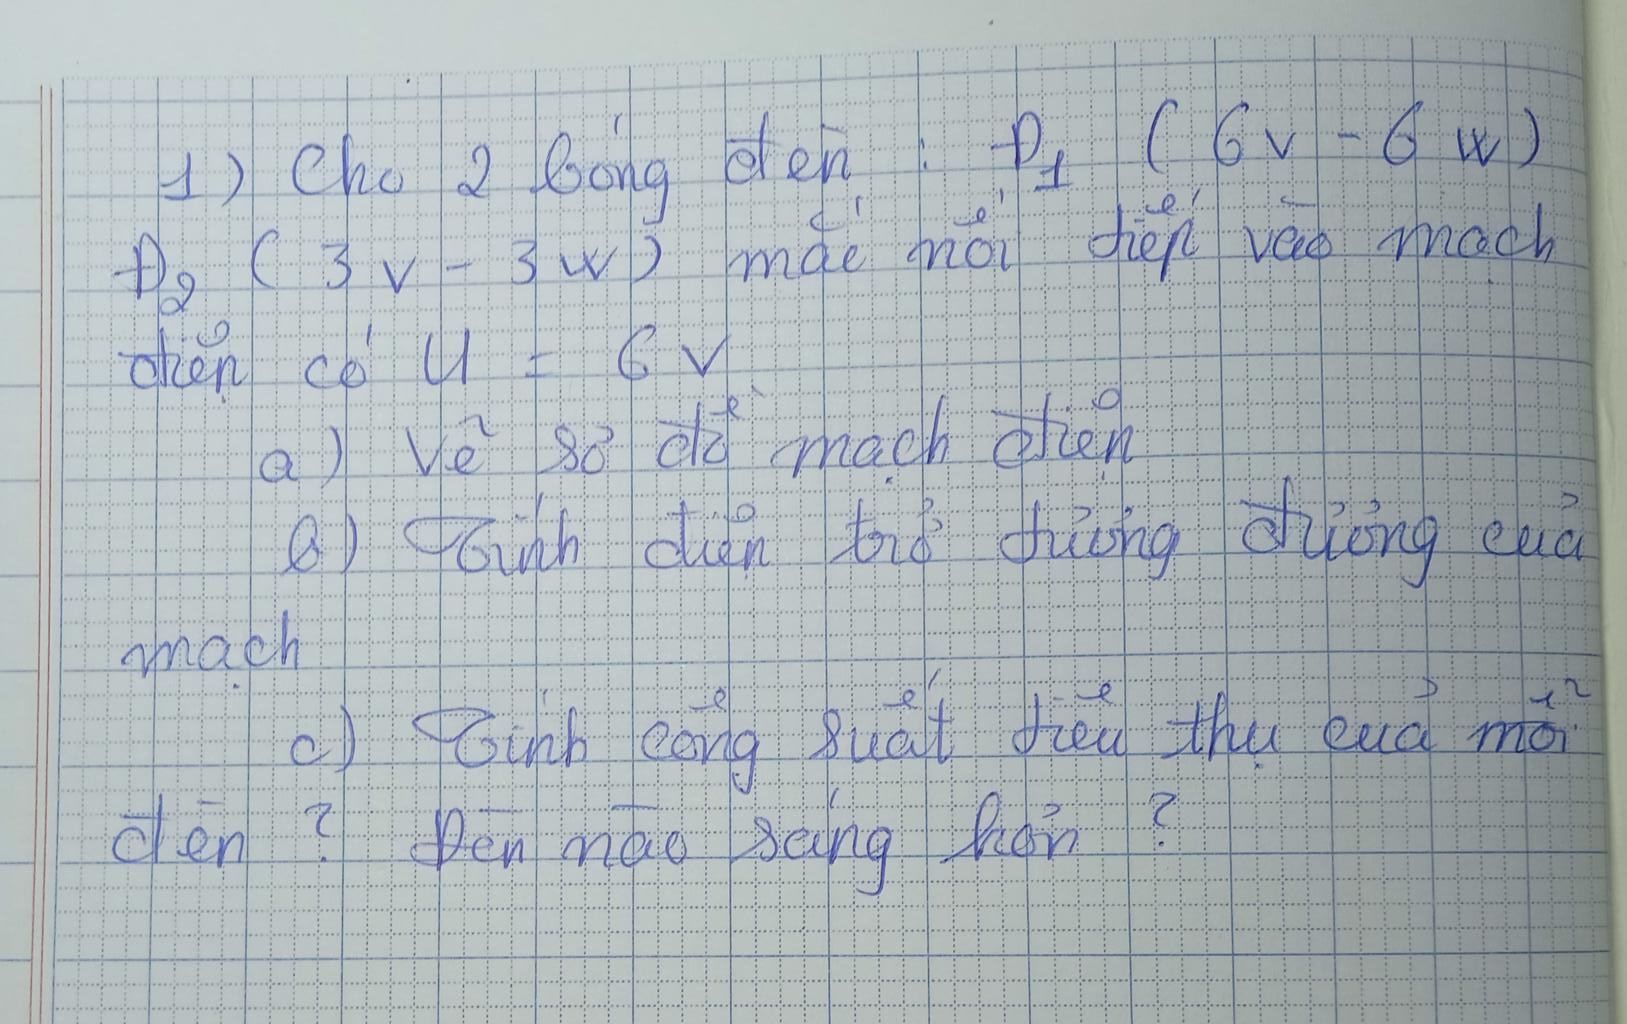 1) Cho 2 bóng đèn : Đ1 ( 6v - 6 w )
Đ2 ( 3v - 3w ) mắc nối tiếp vào mạch
điện có U = 6 v
a) Vẽ sơ đồ mạch điện
b) Tính điện trở tương đương của
mạch
c) Tính công suất tiêu thụ của mỗi
đèn ? Đèn nào sáng hơn ?